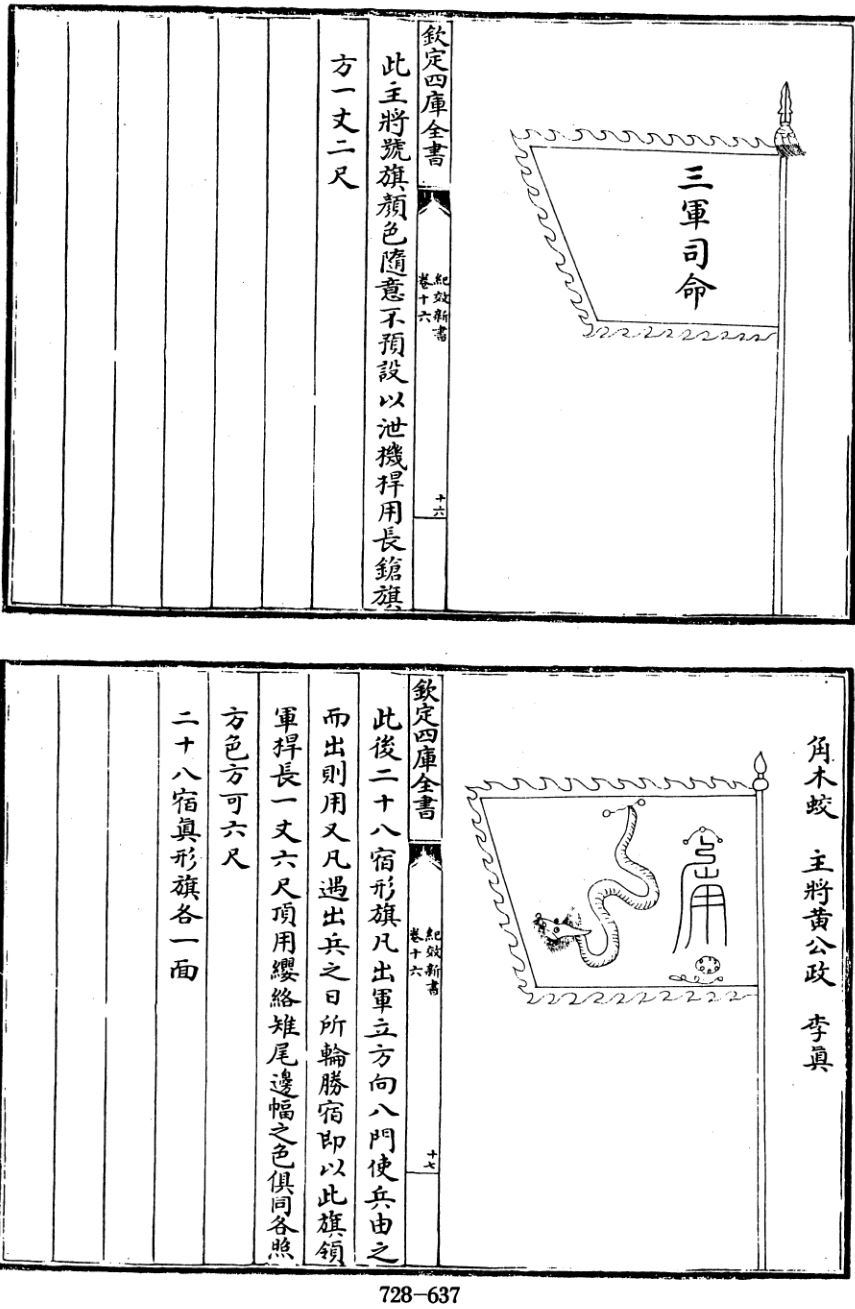 三軍司命
欽定四庫全書
紀效新書
卷十六
十六
此主將號旗顏色隨意不預設以泄機桿用長鎗旗
方一丈二尺
角木蛟 主將黄公政 李眞
欽定四庫全書
紀效新書
卷十六
十七
此後二十八宿形旗凡出軍立方向八門使兵由之
而出則用又凡遇出兵之日所輪勝宿即以此旗領
軍桿長一丈六尺頂用纓絡雉尾邊幅之色俱同各照
方色方可六尺
二十八宿眞形旗各一面
728-637